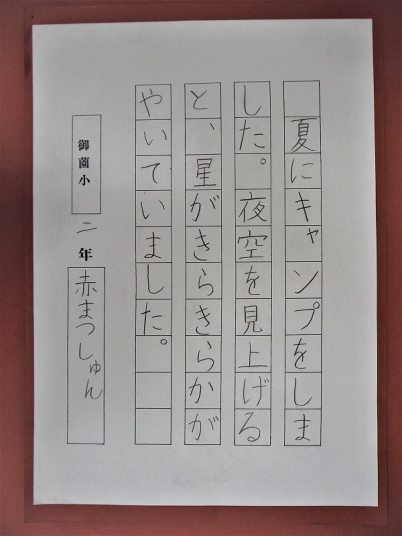 夏にキャンプをしま
した。夜空を見上げる
と、星がきらきらかが
やいていました。
御薗小 二年 赤まつしゅん